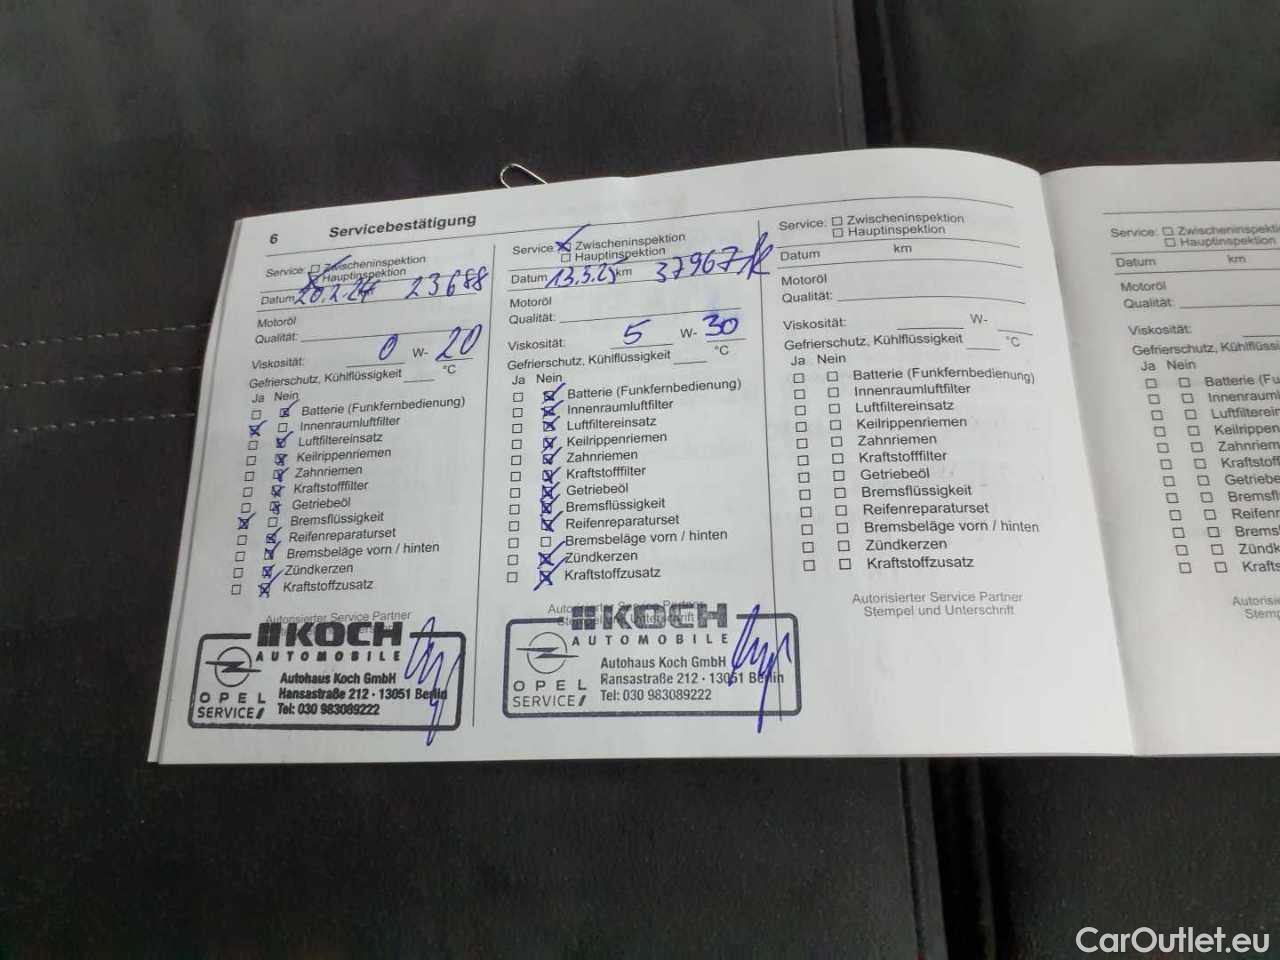 6 Servicebestätigung
Service: Zwischeninspektion
Hauptinspektion
Datum 20.2.24 23688
Motoröl
Qualität:
Viskosität: 0 W- 20
Gefrierschutz, Kühlflüssigkeit °C
Ja Nein
Batterie (Funkfernbedienung)
Innenraumluftfilter
Luftfiltereinsatz
Keilrippenriemen
Zahnriemen
Kraftstofffilter
Getriebeöl
Bremsflüssigkeit
Reifenreparaturset
Bremsbeläge vorn / hinten
Zündkerzen
Kraftstoffzusatz
Autorisierter Service Partner
KOCH
AUTOMOBILE
Autohaus Koch GmbH
Hansastraße 212 · 13051 Berlin
Tel: 030 983089222
OPEL
SERVICE
Service: Zwischeninspektion
Hauptinspektion
Datum 13.3.25 km 37967
Motoröl
Qualität:
Viskosität: 5 W- 30
Gefrierschutz, Kühlflüssigkeit °C
Ja Nein
Batterie (Funkfernbedienung)
Innenraumluftfilter
Luftfiltereinsatz
Keilrippenriemen
Zahnriemen
Kraftstofffilter
Getriebeöl
Bremsflüssigkeit
Reifenreparaturset
Bremsbeläge vorn / hinten
Zündkerzen
Kraftstoffzusatz
Autorisierter Service Partner
Stempel und Unterschrift
KOCH
AUTOMOBILE
Autohaus Koch GmbH
Hansastraße 212 · 13051 Berlin
Tel: 030 983089222
OPEL
SERVICE
Service: Zwischeninspektion
Hauptinspektion
Datum km
Motoröl
Qualität:
Viskosität: W-
Gefrierschutz, Kühlflüssigkeit °C
Ja Nein
Batterie (Funkfernbedienung)
Innenraumluftfilter
Luftfiltereinsatz
Keilrippenriemen
Zahnriemen
Kraftstofffilter
Getriebeöl
Bremsflüssigkeit
Reifenreparaturset
Bremsbeläge vorn / hinten
Zündkerzen
Kraftstoffzusatz
Autorisierter Service Partner
Stempel und Unterschrift
Service: Zwischeninspekti
Hauptinspektion
Datum km
Motoröl
Qualität:
Viskosität:
Gefrierschutz, Kühlflüssi
Ja Nein
Batterie (Fu
Innenrauml
Luftfilterein
Keilrippen
Zahnriem
Kraftstoff
Getriebe
Bremsfl
Reifenr
Brems
Zündk
Krafts
Autorisi
Stemp
CarOutlet.eu